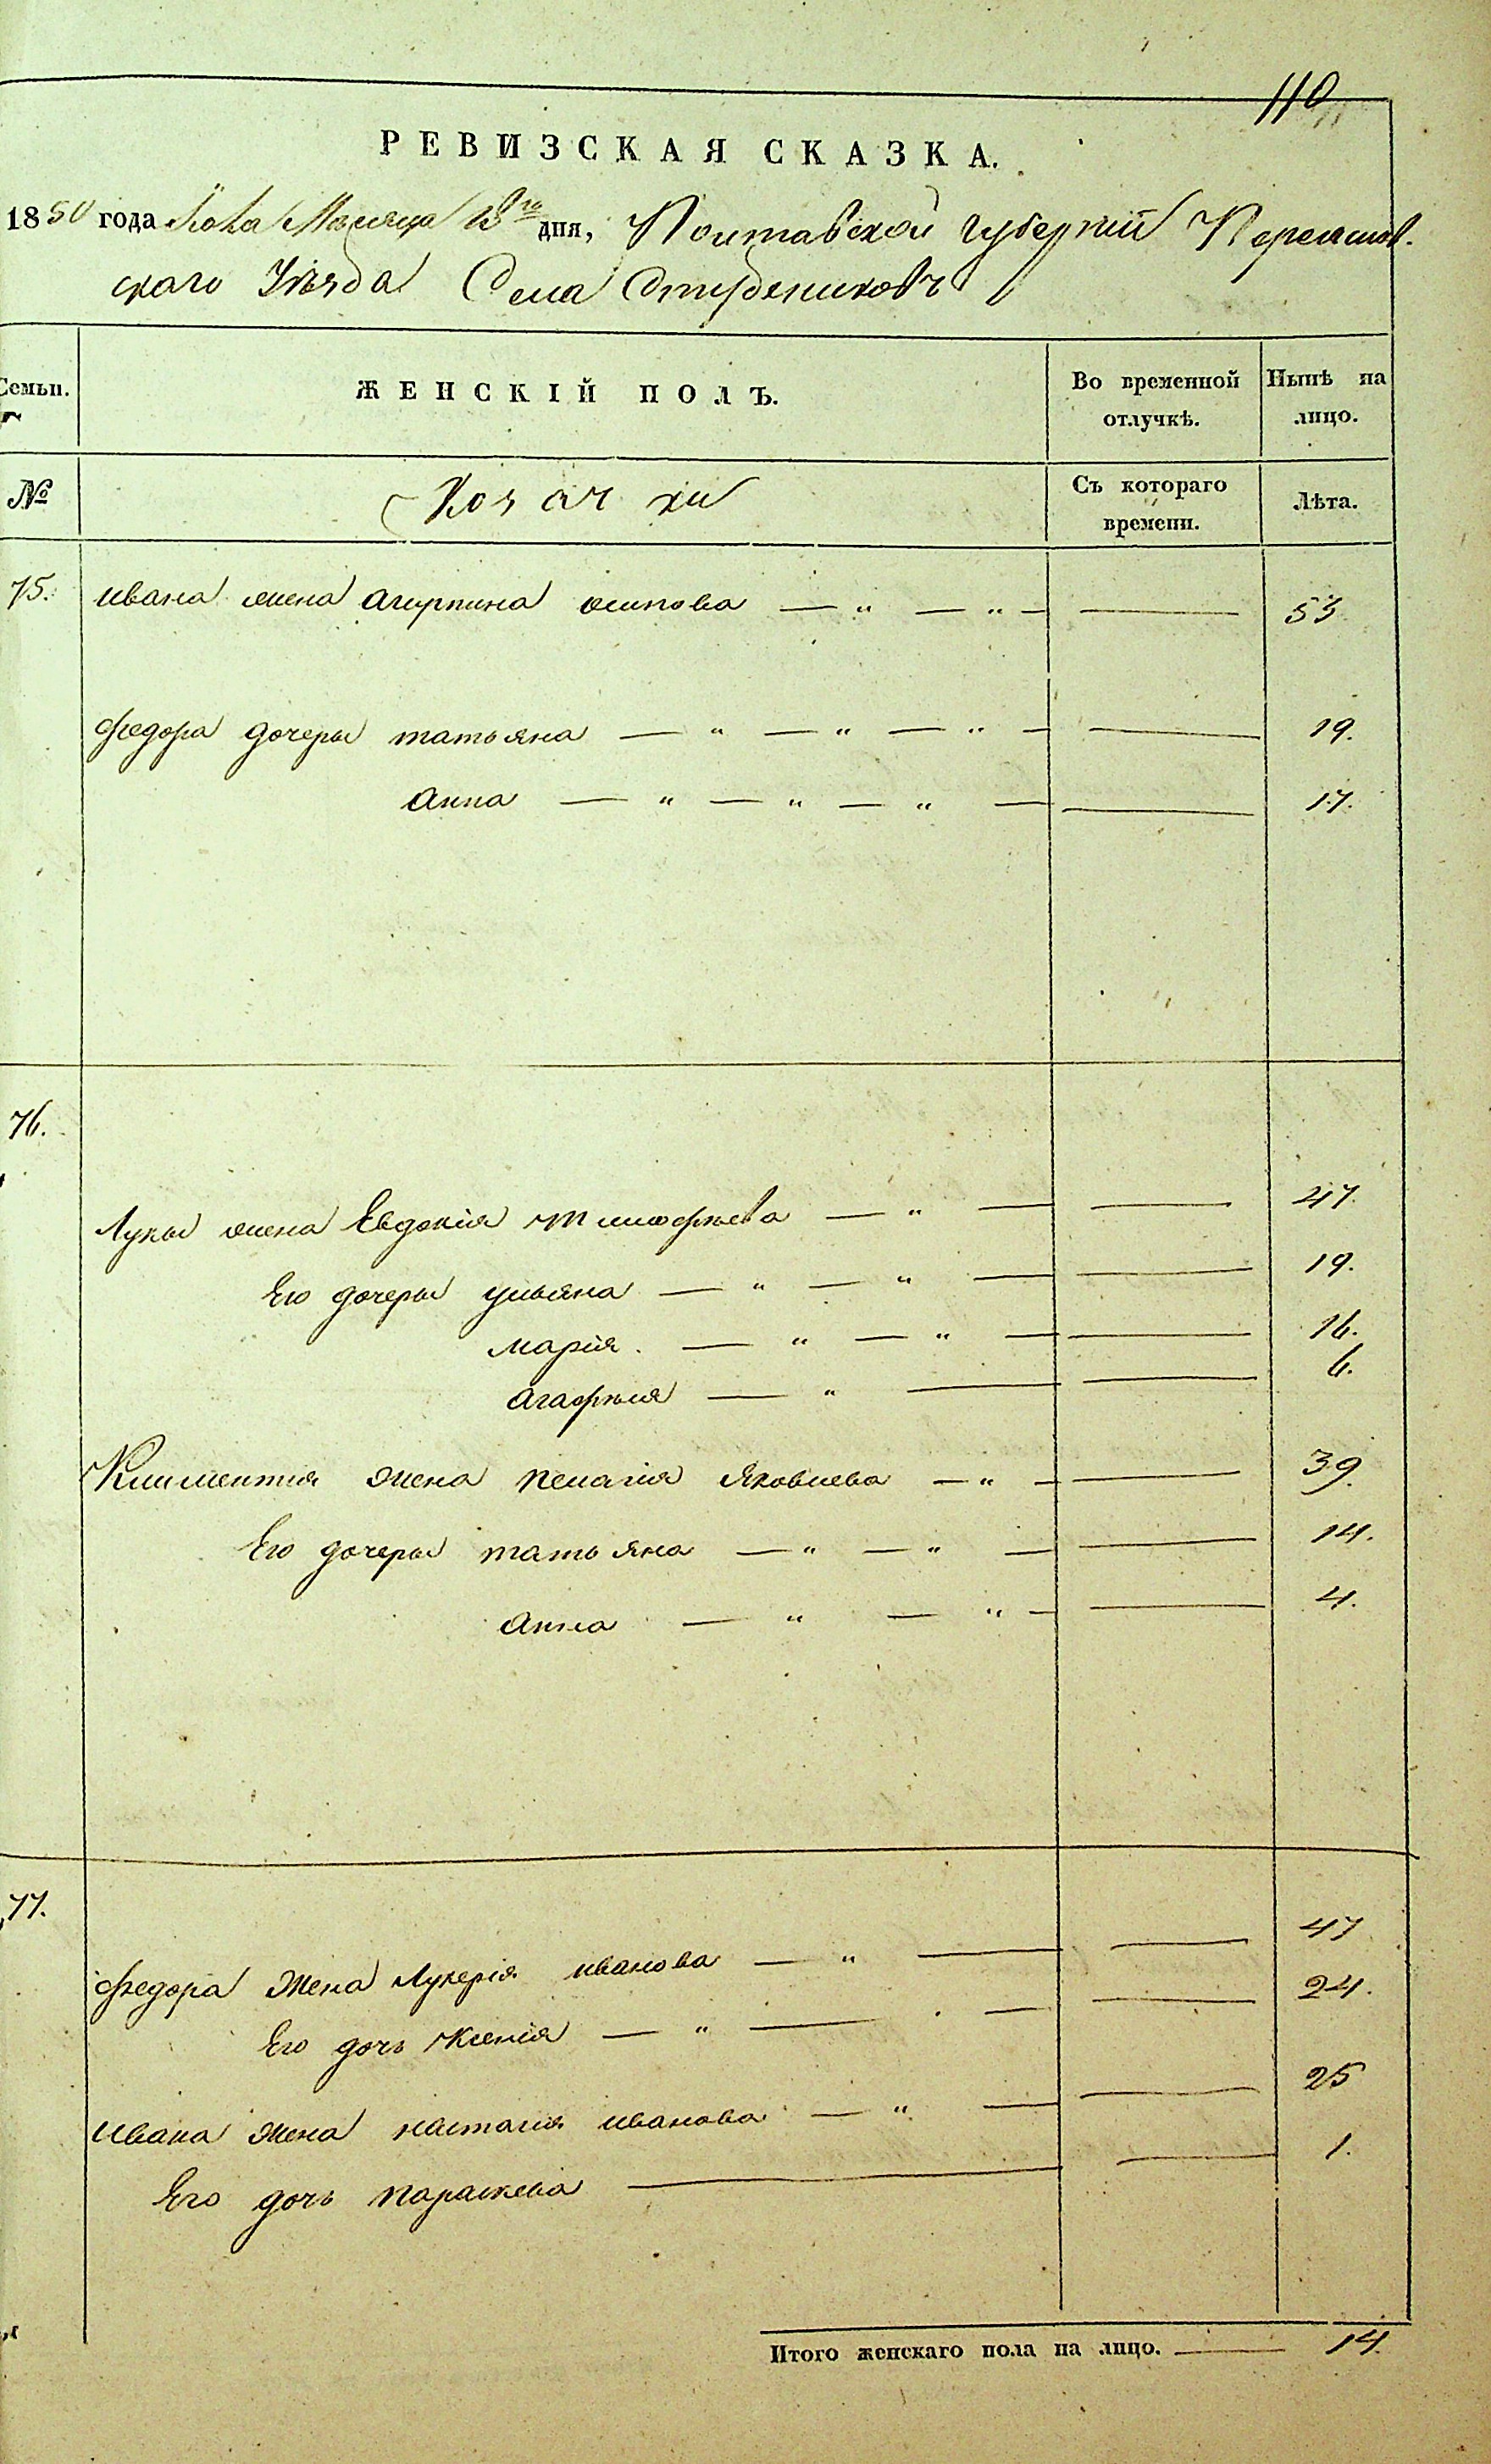 110
РЕВИЗСКАЯ СКАЗКА.
1850 года Мѣсяца дня, Полтавской Губерніи Переяслов-
скаго Уѣзда Села Студениковъ
Семьи. ЖЕНСКІЙ ПОЛЪ. Во временной отлучкѣ. Нынѣ на лицо.
№ Козачки Съ котораго времени. Лѣта.
75. Ивана жена Агирпина осипова — " — " — — 53
Федора дочеры татьяна — " — " — " — — 19.
Анна — " — " — " — — 17.
76.
Луки жена Евдокія тимофѣева — " — — 47.
Его дочеры ульяна — " — " — — 19.
Марія. — " — " — — 16.
Агафѣия — " — — 6.
Климентия жена пелагія Яковлева — " — — 39.
Его дочеры татьяна — " — " — — 14.
Анна — " — " — — 4.
77.
Федора жена Лукерія иванова — " — — 47
Его дочь Ксенія — " — — — 24.
Ивана жена настасия иванова — " — — 25
Его дочь параскева — — 1.
Итого женскаго пола на лицо. — 14.